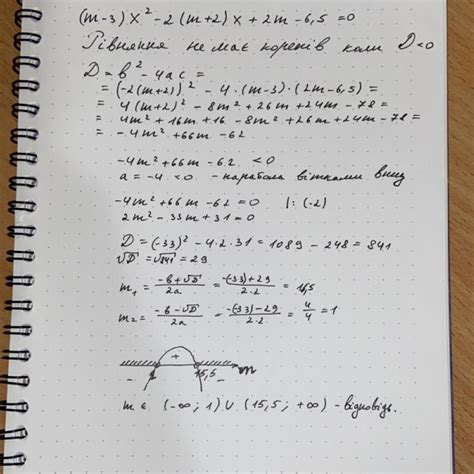 (m-3)x²-2(m+2)x+2m-6,5=0
Рівняння не має коренів коли D<0
D=b²-4ac=
=(-2(m+2))²-4·(m-3)·(2m-6,5)=
=4(m+2)²-8m²+26m+24m-78=
=4m²+16m+16-8m²+26m+24m-78=
=-4m²+66m-62
-4m²+66m-62<0
a=-4<0 - парабола вітками вниз
-4m²+66m-62=0 |:(-2)
2m²-33m+31=0
D=(-33)²-4·2·31=1089-248=841
√D=√841=29
m₁=(-b+√D)/2a=(-(-33)+29)/2·2=15,5
m₂=(-b-√D)/2a=(-(-33)-29)/2·2=4/4=1
+
- 1 15,5 - m
m ∈ (-∞;1)∪(15,5;+∞) - відповідь.